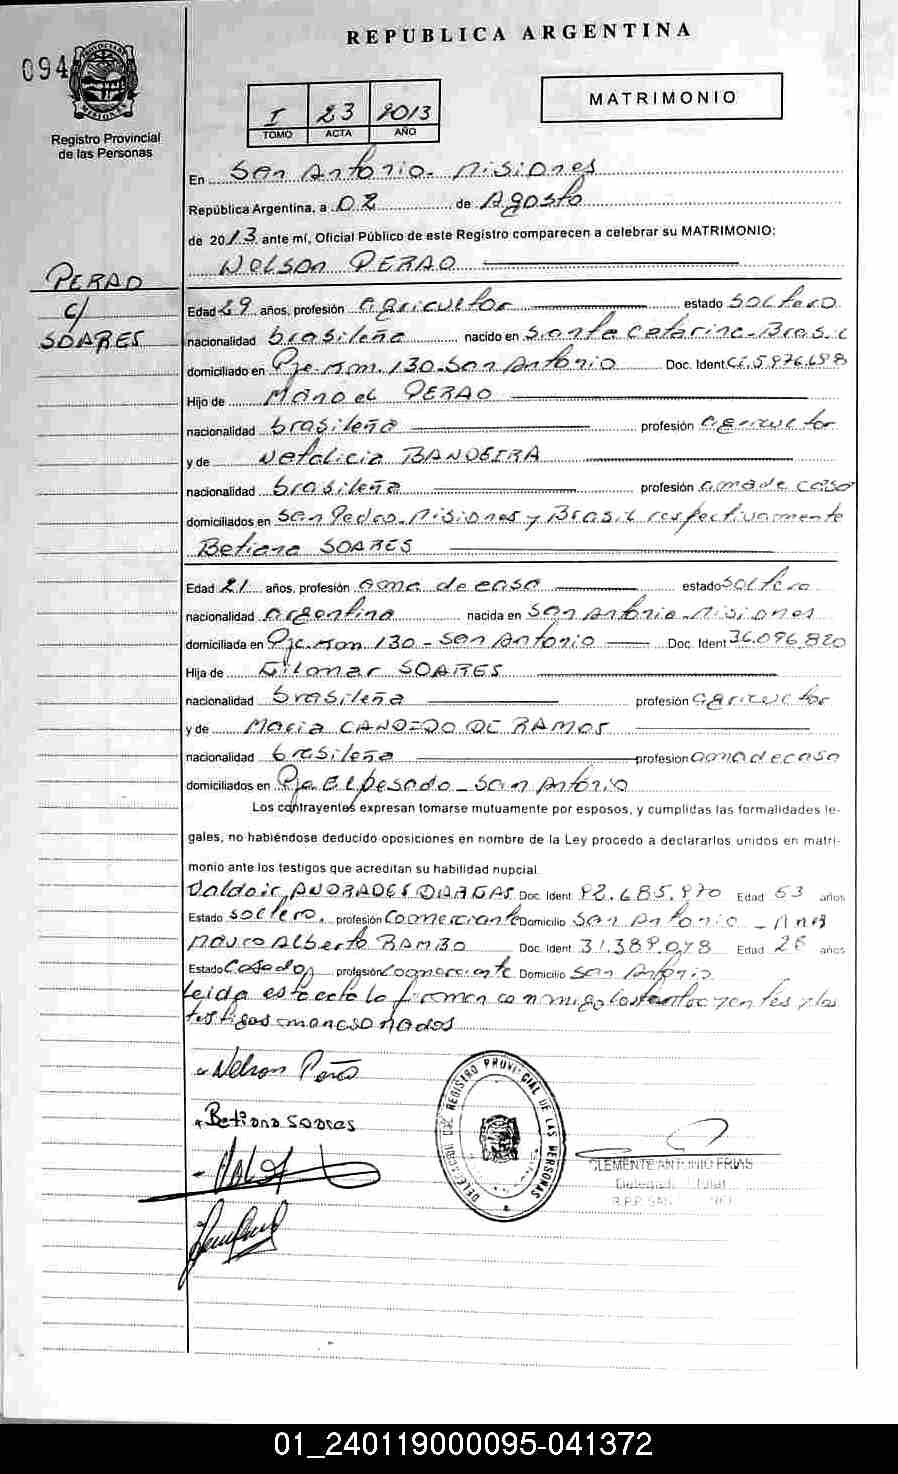 REPUBLICA ARGENTINA
094
PROVINCIA DE MISIONES
Registro Provincial
de las Personas
I 23 2013
TOMO ACTA AÑO
MATRIMONIO
En San Antonio - Misiones
República Argentina, a 02 de Agosto
de 2013 ante mí, Oficial Público de este Registro comparecen a celebrar su MATRIMONIO:
Nelson PERAO
PERAO
c/
SOARES
Edad 29 años, profesión agricultor estado soltero
nacionalidad brasileña nacido en Santa Catarina - Brasil
domiciliado en Pje. Km. 130 - San Antonio Doc. Ident C.I. 5.976.698
Hijo de Manoel PERAO
nacionalidad brasileña profesión agricultor
y de Netalicia BANDEIRA
nacionalidad brasileña profesión ama de casa
domiciliados en San Pedro - Misiones y Brasil respectivamente
Betiana SOARES
Edad 21 años, profesión ama de casa estado soltera
nacionalidad argentina nacida en San Antonio - Misiones
domiciliada en Pje. Km 130 - San Antonio Doc. Ident 36.096.820
Hija de Gilomar SOARES
nacionalidad brasileña profesión agricultor
y de Maria CANDIDO DE RAMOS
nacionalidad brasileña profesion ama de casa
domiciliados en Pje El pesado - San Antonio
Los contrayentes expresan tomarse mutuamente por esposos, y cumplidas las formalidades le-
gales, no habiéndose deducido oposiciones en nombre de la Ley procedo a declararlos unidos en matri-
monio ante los testigos que acreditan su habilidad nupcial.
Valdoir ANDRADES DARGAS Doc. Ident 92.685.970 Edad 53 años
Estado soltero, profesión Comerciante Domicilio San Antonio - Ana
Mauro Alberto RAMBO Doc. Ident 31.389.078 Edad 28 años
Estado Casado, profesión Comerciante Domicilio San Antonio
Leida esta acta la firman conmigo los contrayentes y los
testigos mencionados
Nelson
Betiana Soares
DELEGACION DEL REGISTRO PROVINCIAL DE LAS PERSONAS
CLEMENTE ANTONIO FRIAS
Delegado Titular
01_240119000095-041372